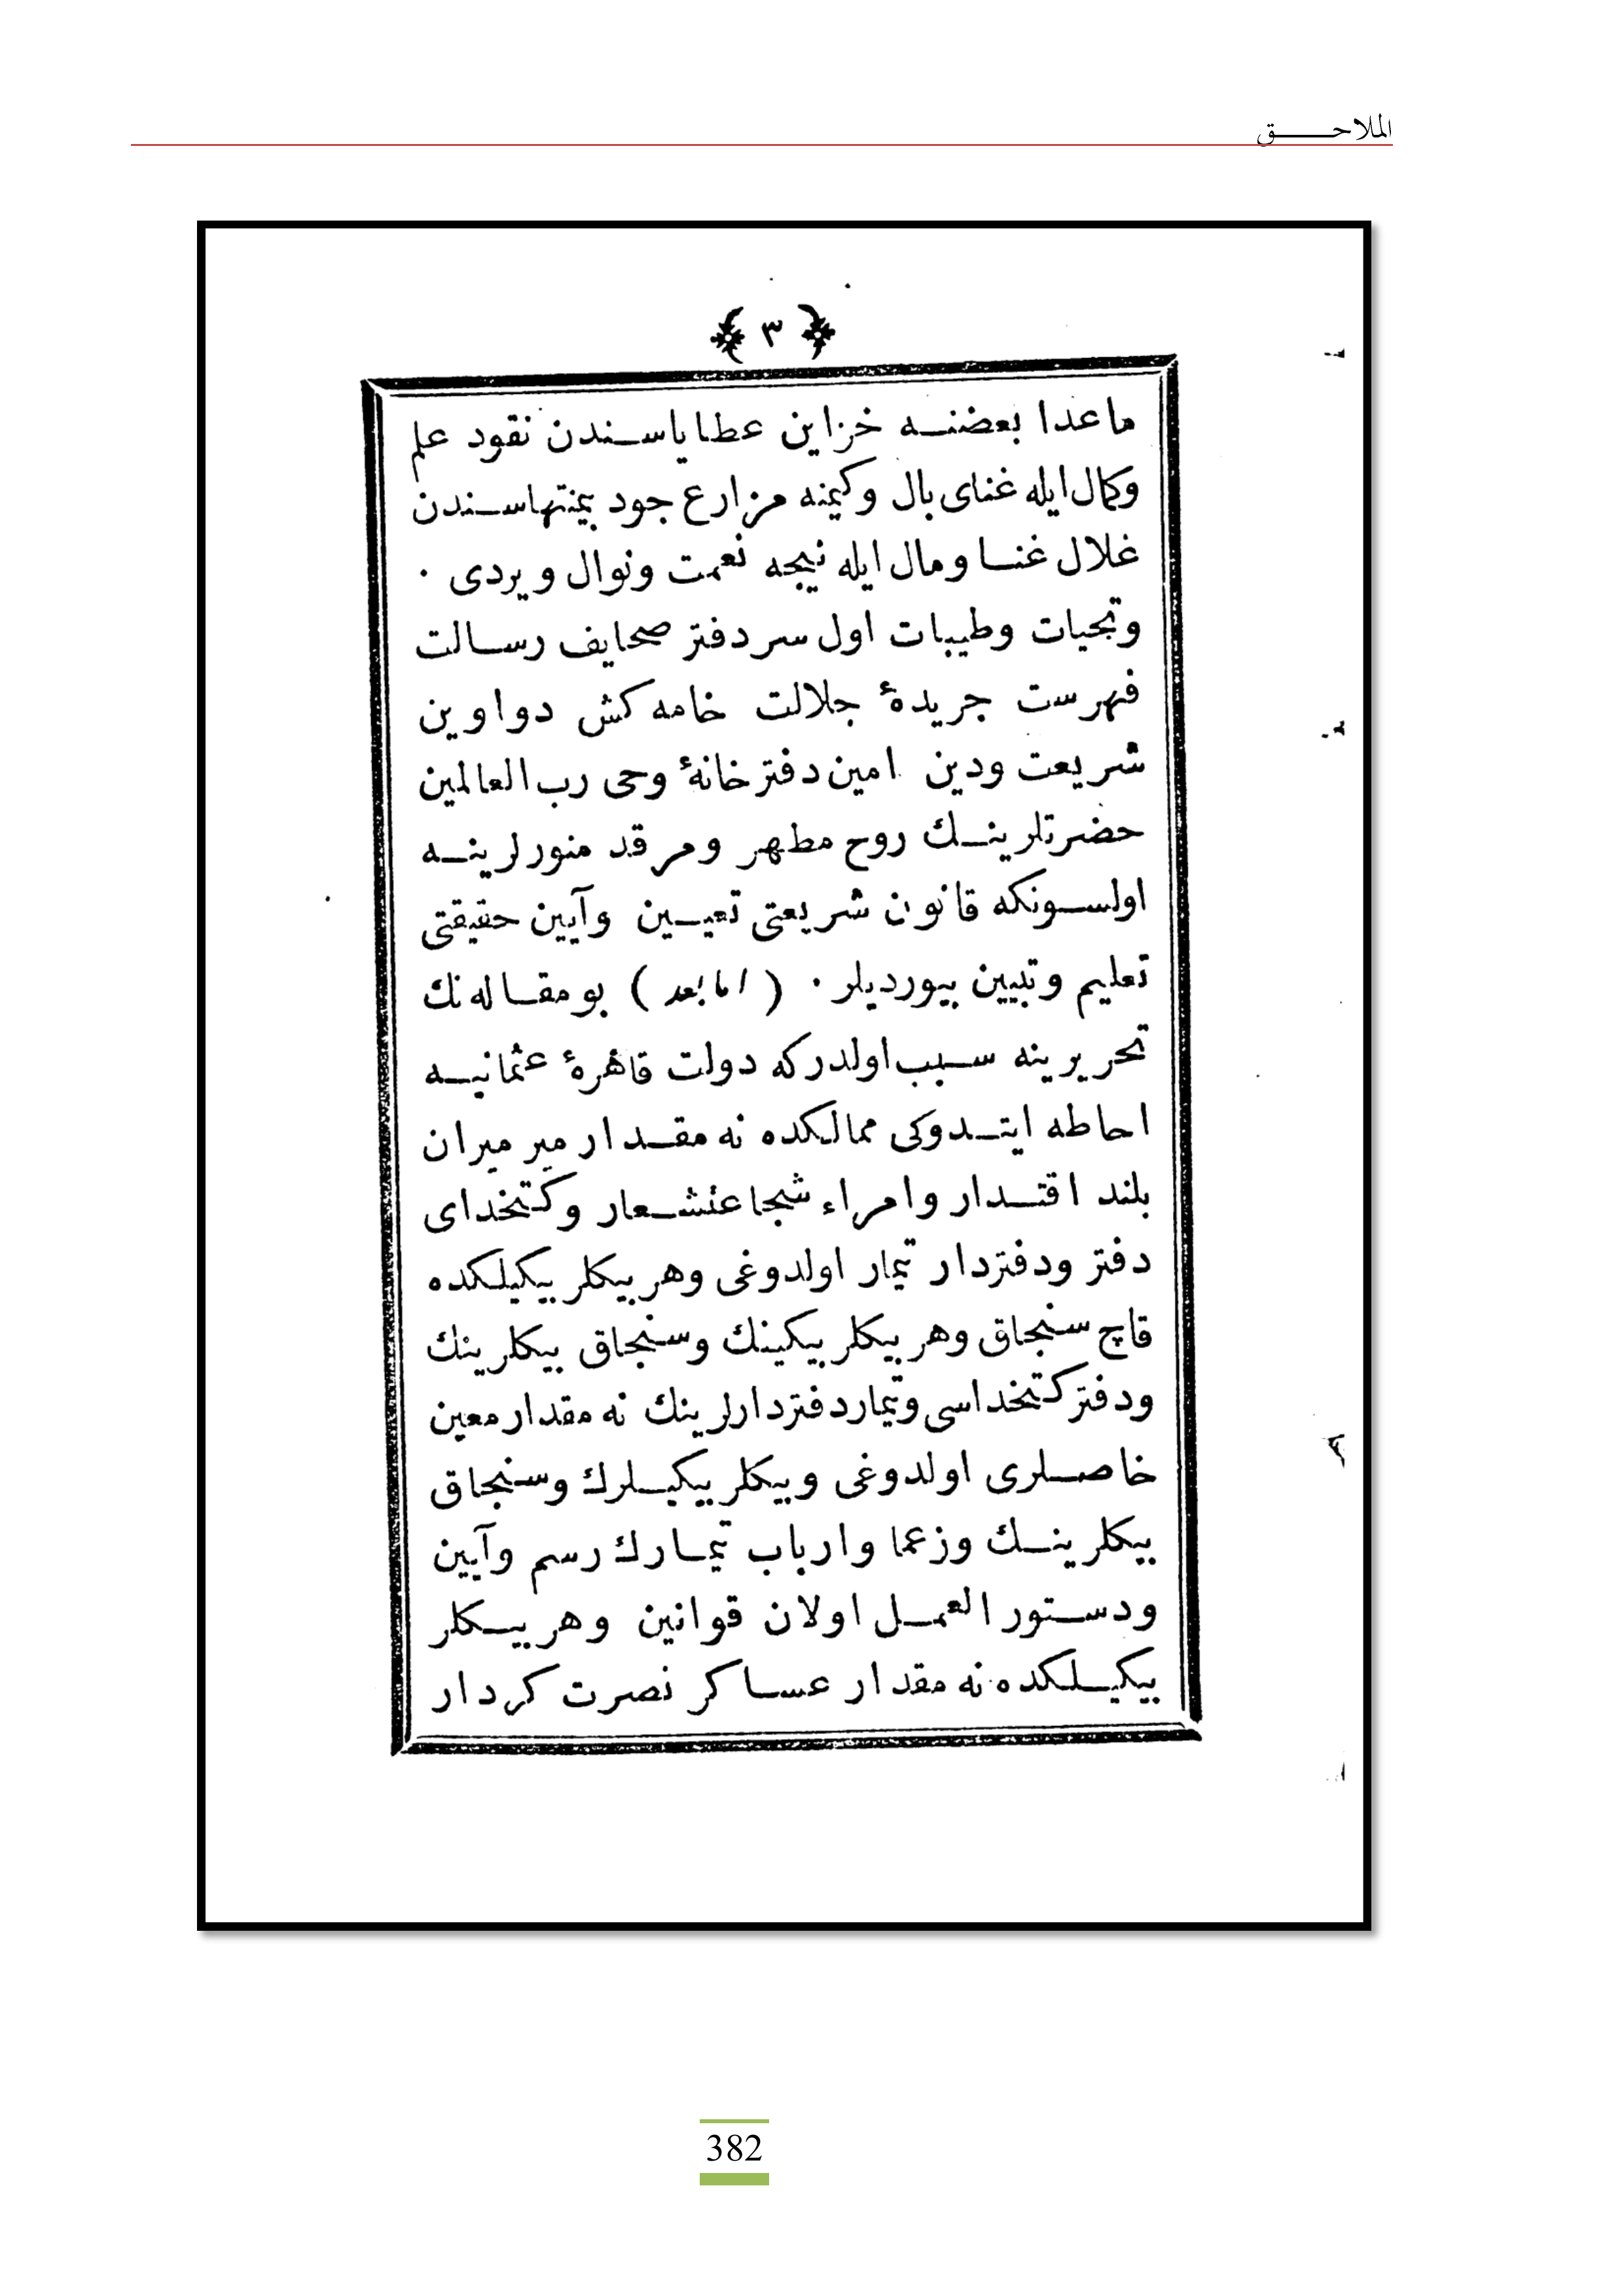 الملاحـــــــق
﴿ ٣ ﴾
ماعدا بعضنه خزاين عطاياسندن نقود علم
وكمال ايله غناى بال وكيمنه مزارع جود بيمنتهاسندن
غلال غنا ومال ايله نيجه نعمت ونوال ويردى ٠
وتحيات وطيبات اول سردفتر صحايف رسالت
فهرست جريدهٔ جلالت خامه كش دواوين
شريعت ودين امين دفترخانهٔ وحى رب العالمين
حضرتلرينك روح مطهر ومرقد منورلرينه
اولسونكه قانون شريعتى تعيين وآيين حقيقتى
تعليم وتبيين بيورديلر ٠ ( اما بعد ) بو مقاله نك
تحريرينه سبب اولدركه دولت قاهرهٔ عثمانيه
احاطه ايتدوكى ممالكده نه مقدار مير ميران
بلند اقتدار وامراء شجاعتشعار وكتخداى
دفتر ودفتردار تيمار اولدوغى وهر بيكلر بيكيلكده
قاچ سنجاق وهر بيكلر بيكينك وسنجاق بيكلرينك
ودفتر كتخداسى وتيمار دفتردارلرينك نه مقدار معين
خاصلرى اولدوغى وبيكلر بيكيلرك وسنجاق
بيكلرينك وزعما وارباب تيمارك رسم وآيين
ودستور العمل اولان قوانين وهر بيكلر
بيكيلكده نه مقدار عساكر نصرت كردار
382